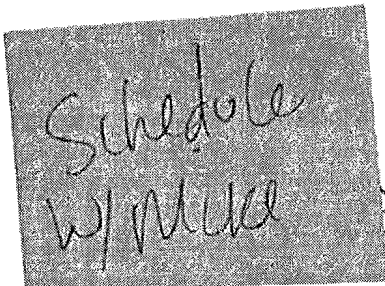 Schedule
w/ Mike